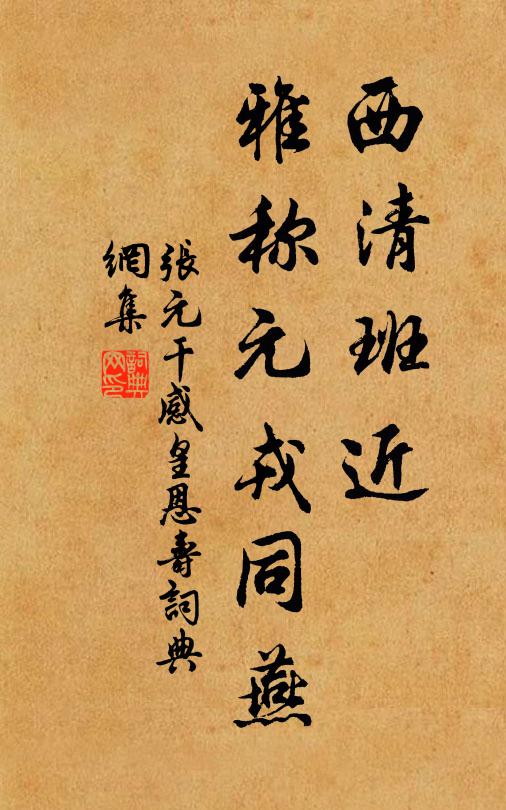 西清班近
雅称元戎同燕
張元干感皇恩壽詞典
網集
詞典
网印